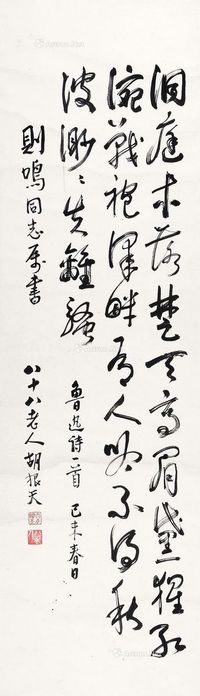 洞庭木落楚天高眉黛猩紅
涴戰袍澤畔有人吟不得秋
波渺〻失離騷
魯迅詩一首 己未春日
則鳴同志属書
八十八老人胡根天